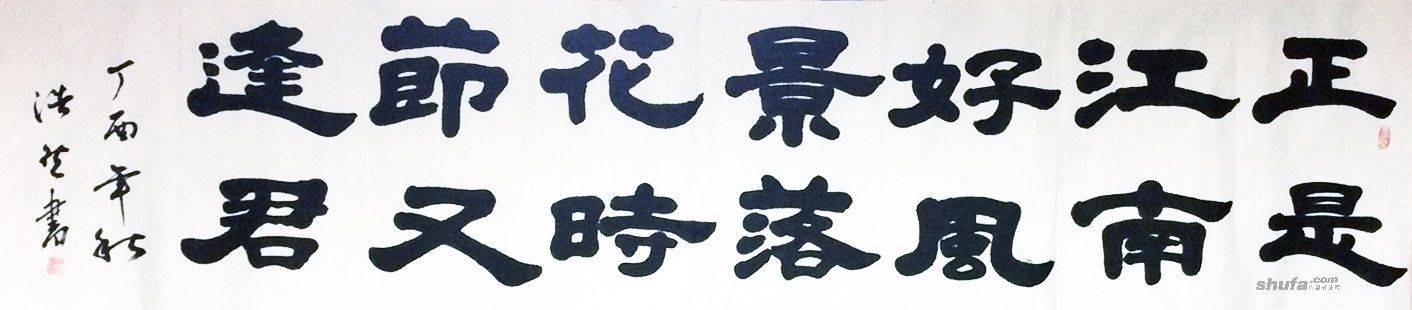 正是
江南
好風
景落
花時
節又
逢君
丁酉年秋
浩然書
shufa.com